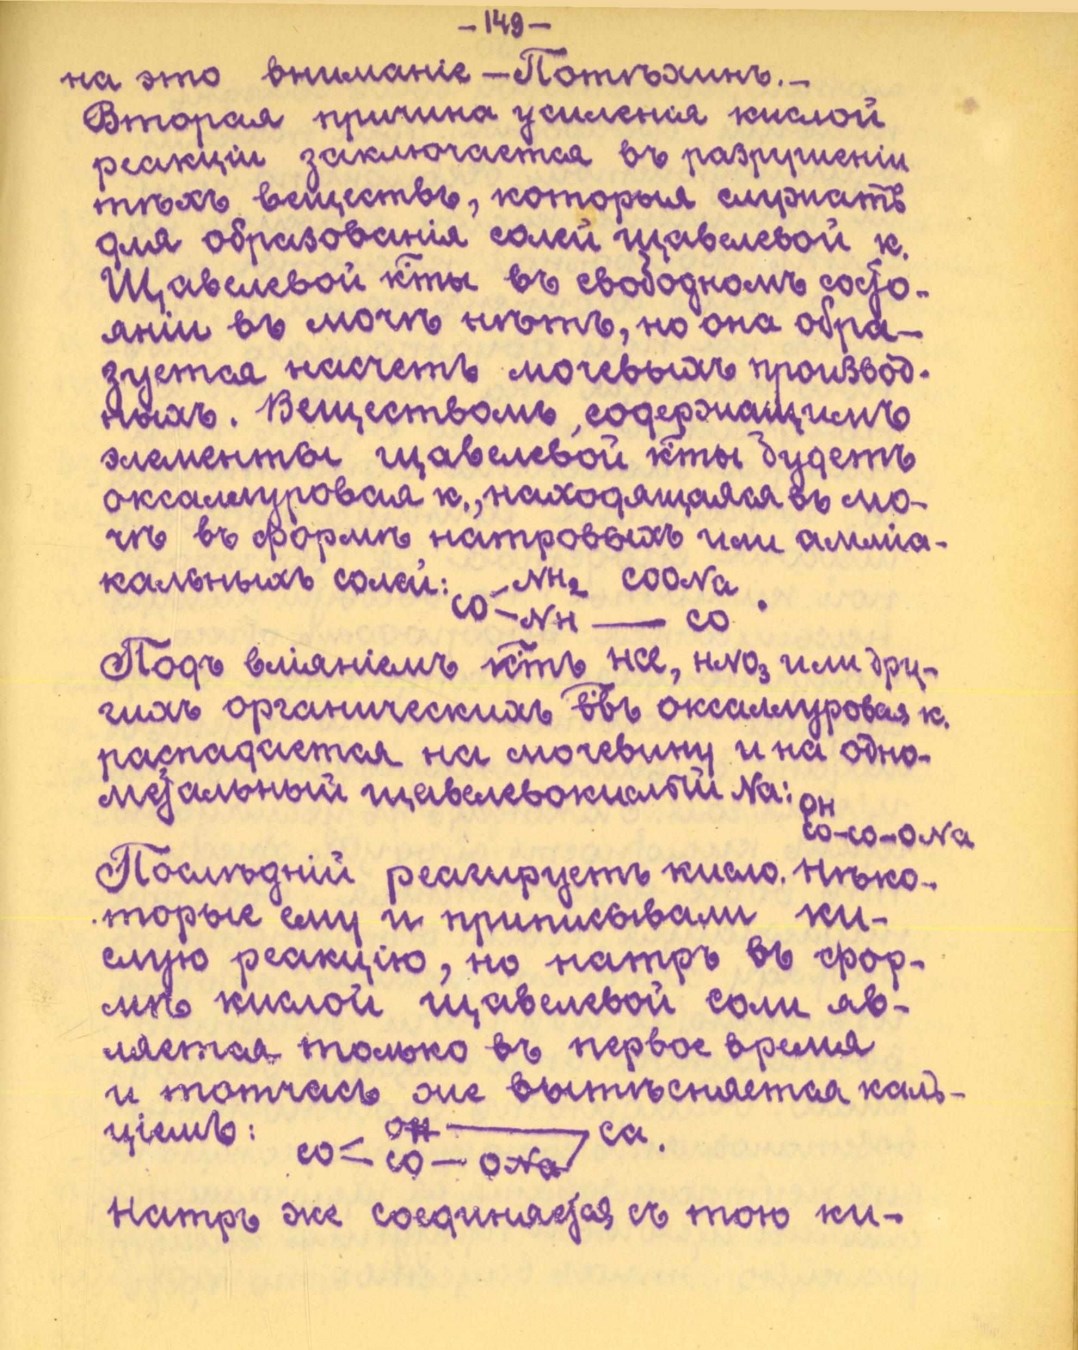 -149-
на это вниманіе – Потѣхинъ. –
Вторая причина усиленія кислой
реакціи заключается въ разрушеніи
тѣхъ веществъ, которыя служатъ
для образованія солей щавелевой к.
Щавелевой к̅ты въ свободномъ состо-
яніи въ мочѣ нѣтъ, но она обра-
зуется насчетъ мочевыхъ производ-
ныхъ. Веществомъ, содержащимъ
элементы щавелевой к̅ты будетъ
оксаллуровая к., находящаяся въ мо-
чѣ въ формѣ натровыхъ или амміа-
кальныхъ солей: NH2 COONa
CO - NH — CO .
Подъ вліяніемъ к̅тъ HCl, HNO3 или дру-
гихъ органическихъ в̅въ оксаллуровая к.
распадается на мочевину и на одно-
метальный щавелевокислый Na:
OH
CO-CO-ONa
Послѣдній реагируетъ кисло. Нѣко-
торые ему и приписывали ки-
слую реакцію, но натръ въ фор-
мѣ кислой щавелевой соли яв-
ляется только въ первое время
и тотчасъ же вытѣсняется каль-
ціемъ: OH — Ca
CO < CO — ONa
Натръ же соединяется съ тою ки-